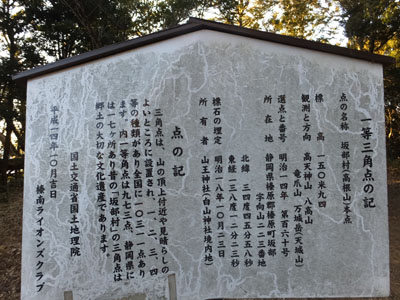 一等三角点の記
点の名称 坂部村(高根山)本点
標高 一五〇米九四
観測と方向 高天神山・八高山
竜爪山 万城岳(天城山)
選点と番号 明治一四年 第百六十号
所在地 静岡県榛原郡榛原町坂部
字向山二二三番地
北緯 三四度四五分五八秒
東経 一三八度一二分二三秒
標石の埋定 明治一八年一〇月二三日
所有者 山王神社(白山神社境内地)
点の記
三角点は、山の頂上付近や見晴らしの
よいところに設置され、一、二、三、四
等の種類があり全国に
ます。内一等角点は九七三点、静岡県に
は一七ヶ所あり昔の(坂部村)の三角点は
郷土の大切な文化遺産であります。
国土交通省国土地理院
平成一四年一〇月吉日
榛南ライオンズクラブ